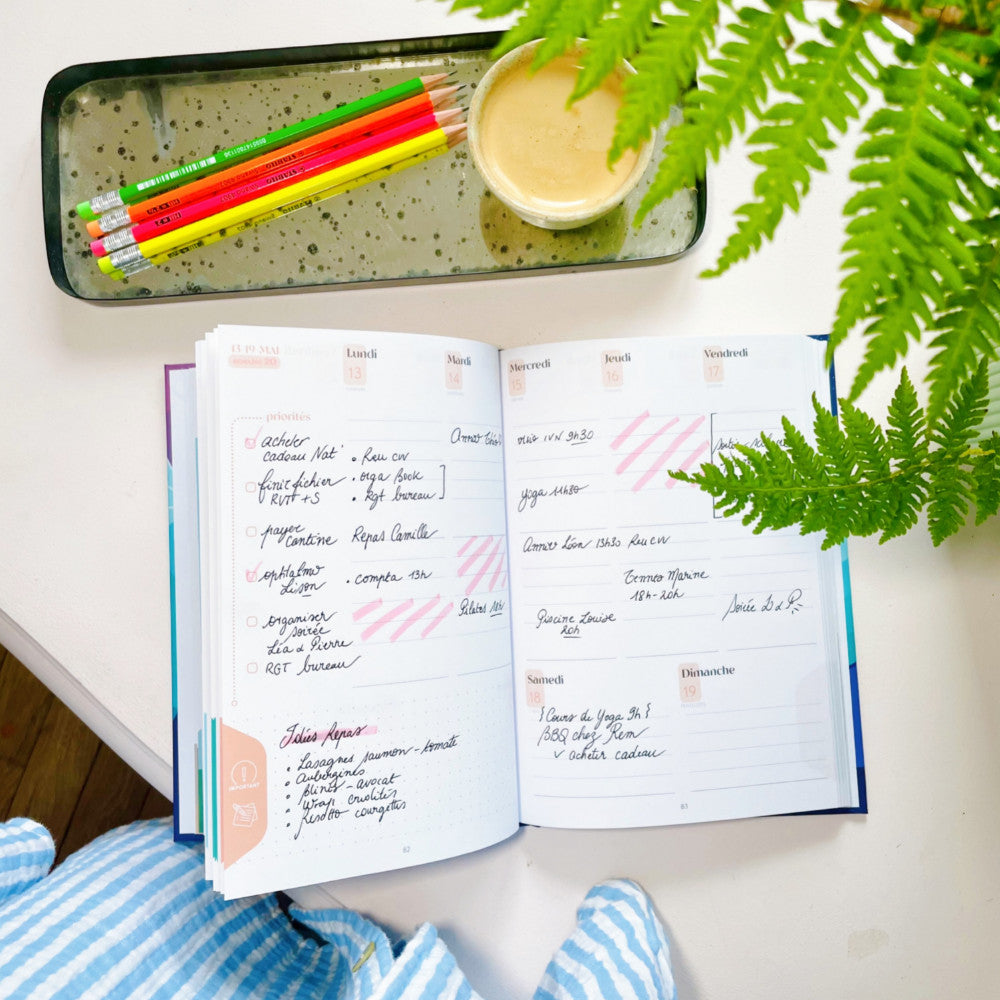 13-19 MAI
Lundi
13
Mardi
14
priorités
acheter
cadeau Nat'
finir fichier
RVTT + S
payer
cantine
ophtalmo
Lison
organiser
soirée
Léa & Pierre
RGT bureau
• Reu CW
• orga Book
• Rgt bureau
Repas Camille
• compta 13h
Anniv
Pilates 18h
Idées Repas
• Lasagnes saumon - tomate
• Aubergines
• Blinis - avocat
• Wrap crudités
• Risotto courgettes
IMPORTANT
82
Mercredi
15
Jeudi
16
Vendredi
17
visio IVN 9h30
yoga 11h30
Anniv Léon 13h30
Reu CW
Tennis Marine
18h - 20h
Piscine Louise
20h
Soirée L & P
Samedi
18
Dimanche
19
{Cours de Yoga 9h}
BBQ chez Rem
v acheter cadeau
83
STABILO
HB = 2